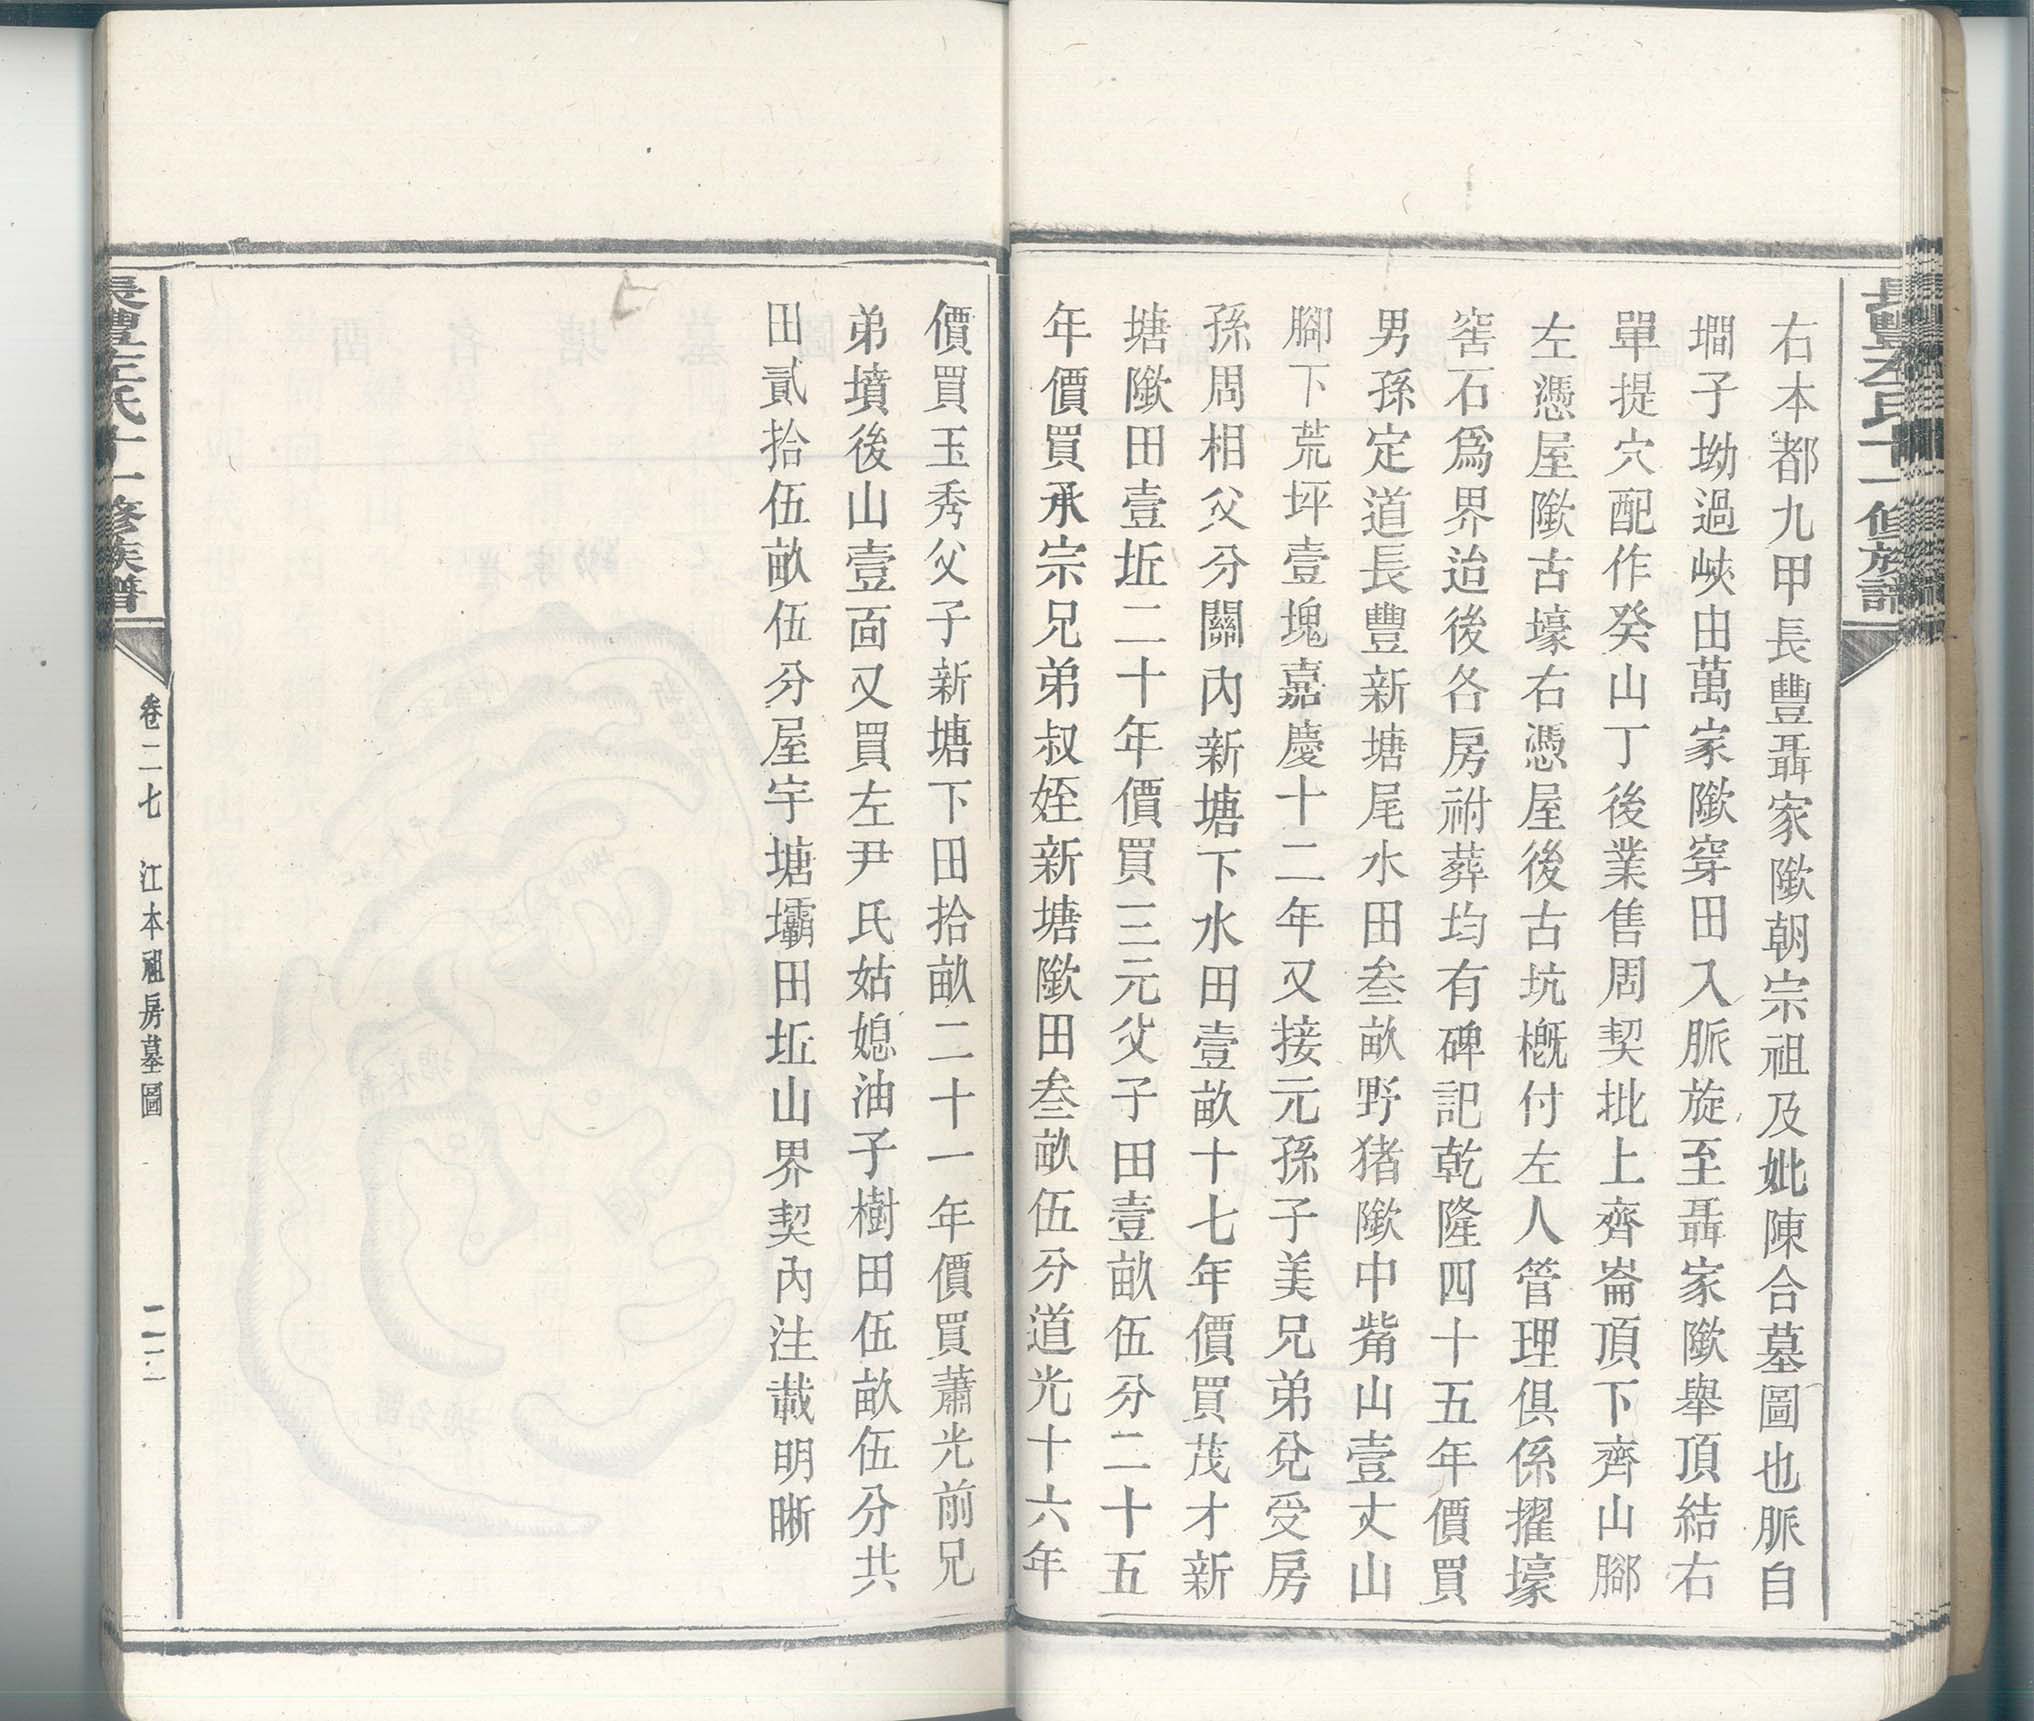 長豐左氏十一修族譜
右本都九甲長豐聶家隞朝宗祖及妣陳合墓圖也脈自
墹子坳過峽由萬家隞穿田入脈旋至聶家隞舉頂結右
單提穴配作癸山丁後業售周契批上齊崙頂下齊山腳
左憑屋隞古壕右憑屋後古坑概付左人管理俱係擢壕
窖石為界迨後各房祔葬均有碑記乾隆四十五年價買
男孫定道長豐新塘尾水田叁畝野猪隞中觜山壹丈山
腳下荒坪壹塊嘉慶十二年又接元孫子美兄弟兌受房
孫周相父分關內新塘下水田壹畝十七年價買茂才新
塘隞田壹坵二十年價買三元父子田壹畝伍分二十五
年價買承宗兄弟叔姪新塘隞田叁畝伍分道光十六年
價買玉秀父子新塘下田拾畝二十一年價買蕭光前兄
弟墳後山壹面又買左尹氏姑媳油子樹田伍畝伍分共
田貳拾伍畝伍分屋宇塘壩田坵山界契內注載明晰
長豐左氏十一修族譜
卷二七 江本祖房墓圖